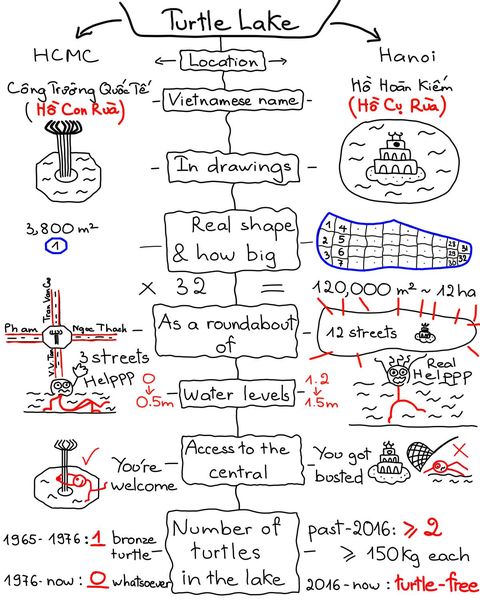 Turtle Lake
HCMC
Location
Hanoi
Công Trường Quốc Tế
(Hồ Con Rùa)
Vietnamese name
Hồ Hoàn Kiếm
(Hồ Cụ Rùa)
In drawings
3,800 m²
1
Real shape
& how big
1 4
2 5 28 31
3 6 29 32
7 30
× 32 =
120,000 m² ~ 12ha
Tran Van
Pham Ngoc Thach
V.V. Tan
3 streets
As a roundabout
of
12 streets
Helppp
0
0.5m
Water levels
1.2
1.5m
Real
Helppp
You're
welcome
Access to the
central
You got
busted
Number of
turtles
in the lake
1965-1976: 1 bronze
turtle
1976-now: 0 whatsoever
past-2016: ≥ 2
≥ 150kg each
2016-now: turtle-free